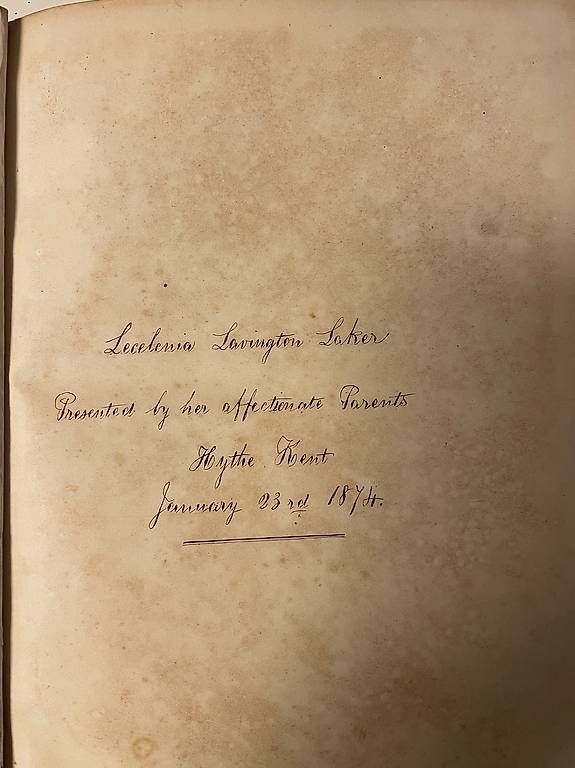 Lecelenia Lavington Laker
Presented by her affectionate Parents
Hythe Kent
January 23rd 1874.